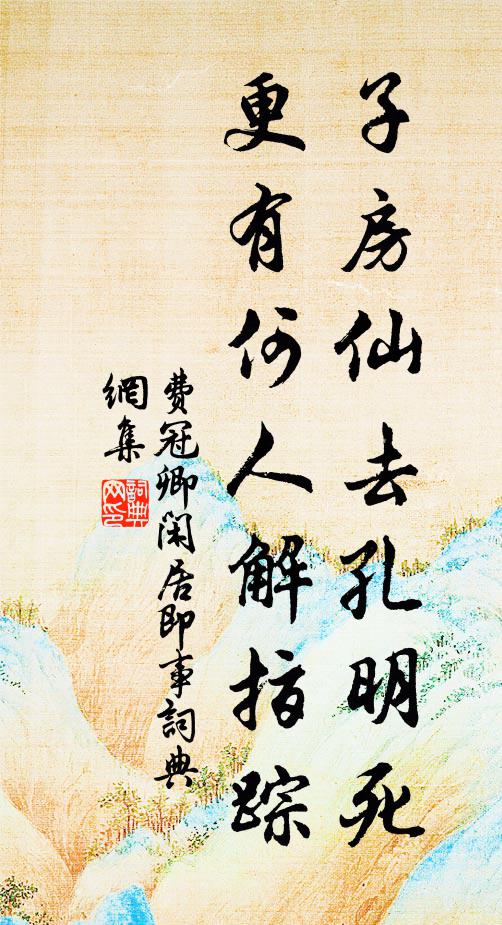 子房仙去孔明死
更有何人解指踪
费冠卿闲居即事詞典
網集
詞典
网印